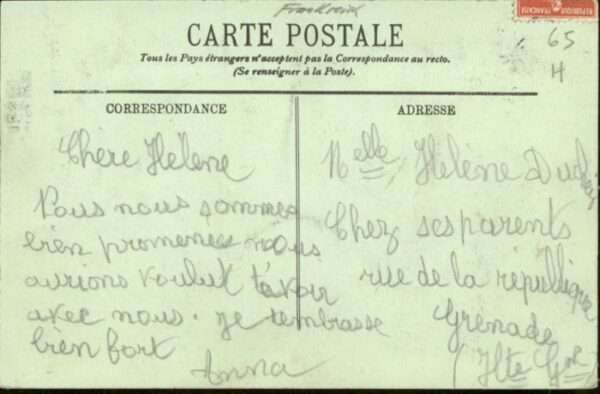 CARTE POSTALE
Tous les Pays étrangers n'acceptent pas la Correspondance au recto.
(Se renseigner à la Poste).
65
H
CORRESPONDANCE
Chère Hélène
Nous nous sommes
bien promenées nous
aurions voulut t'avoir
avec nous. je t'embrasse
bien fort
Anna
ADRESSE
Melle Hélène
Chez ses parents
rue de la republique
Grenade
(Hte Gne)
REPUBLIQUE FRANÇAISE